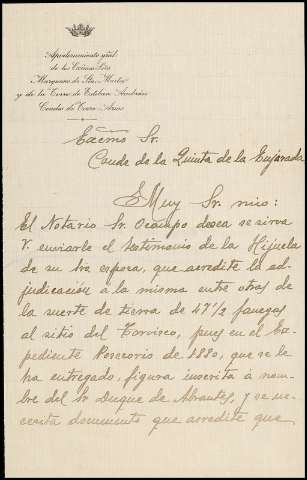 Apoderamiento gral
de los Excmos Sres
Marqueses de Sta Marta
y de la Torre de Esteban Hambrán
Condes de Torre Arias
Excmo Sr.
Conde de la Quinta de la Enjarada
Muy Sr. mio:
El Notario Sr. Ocampo desea se sirva
V. enviarle el testimonio de la Hijuela
de su Sra esposa, que acredite la ad-
judicación a la misma entre otras de
la suerte de tierra de 47 1/2 fanegas
al sitio del Torvisco, pues en el Ex-
pediente Posesorio de 1880, que se le
ha entregado, figura inscrita á nom-
bre del Sr Duque de Abrantes, y se ne-
cesita documento que acredite que